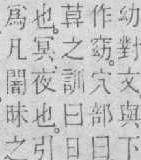 幼對文與下
作窈。穴部曰
之訓曰日
也。冥夜也。引
爲凡闇昧之